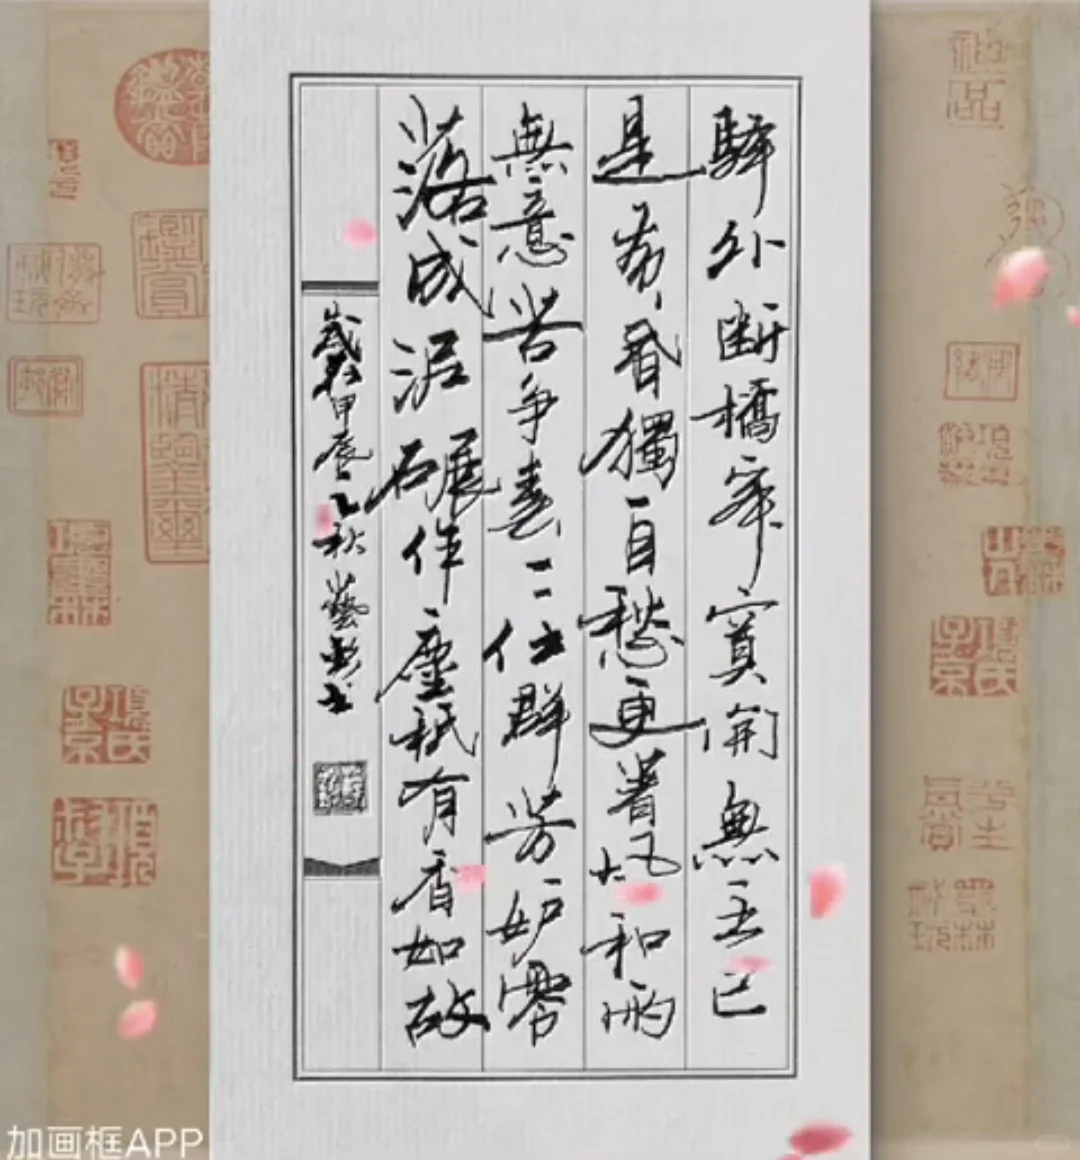 驛外斷橋寂寞開無主已
是黃昏獨自愁更著風和雨
無意苦爭春一任群芳妒零
落成泥碾作塵祇有香如故
歲在甲辰之秋藝書
加画框APP